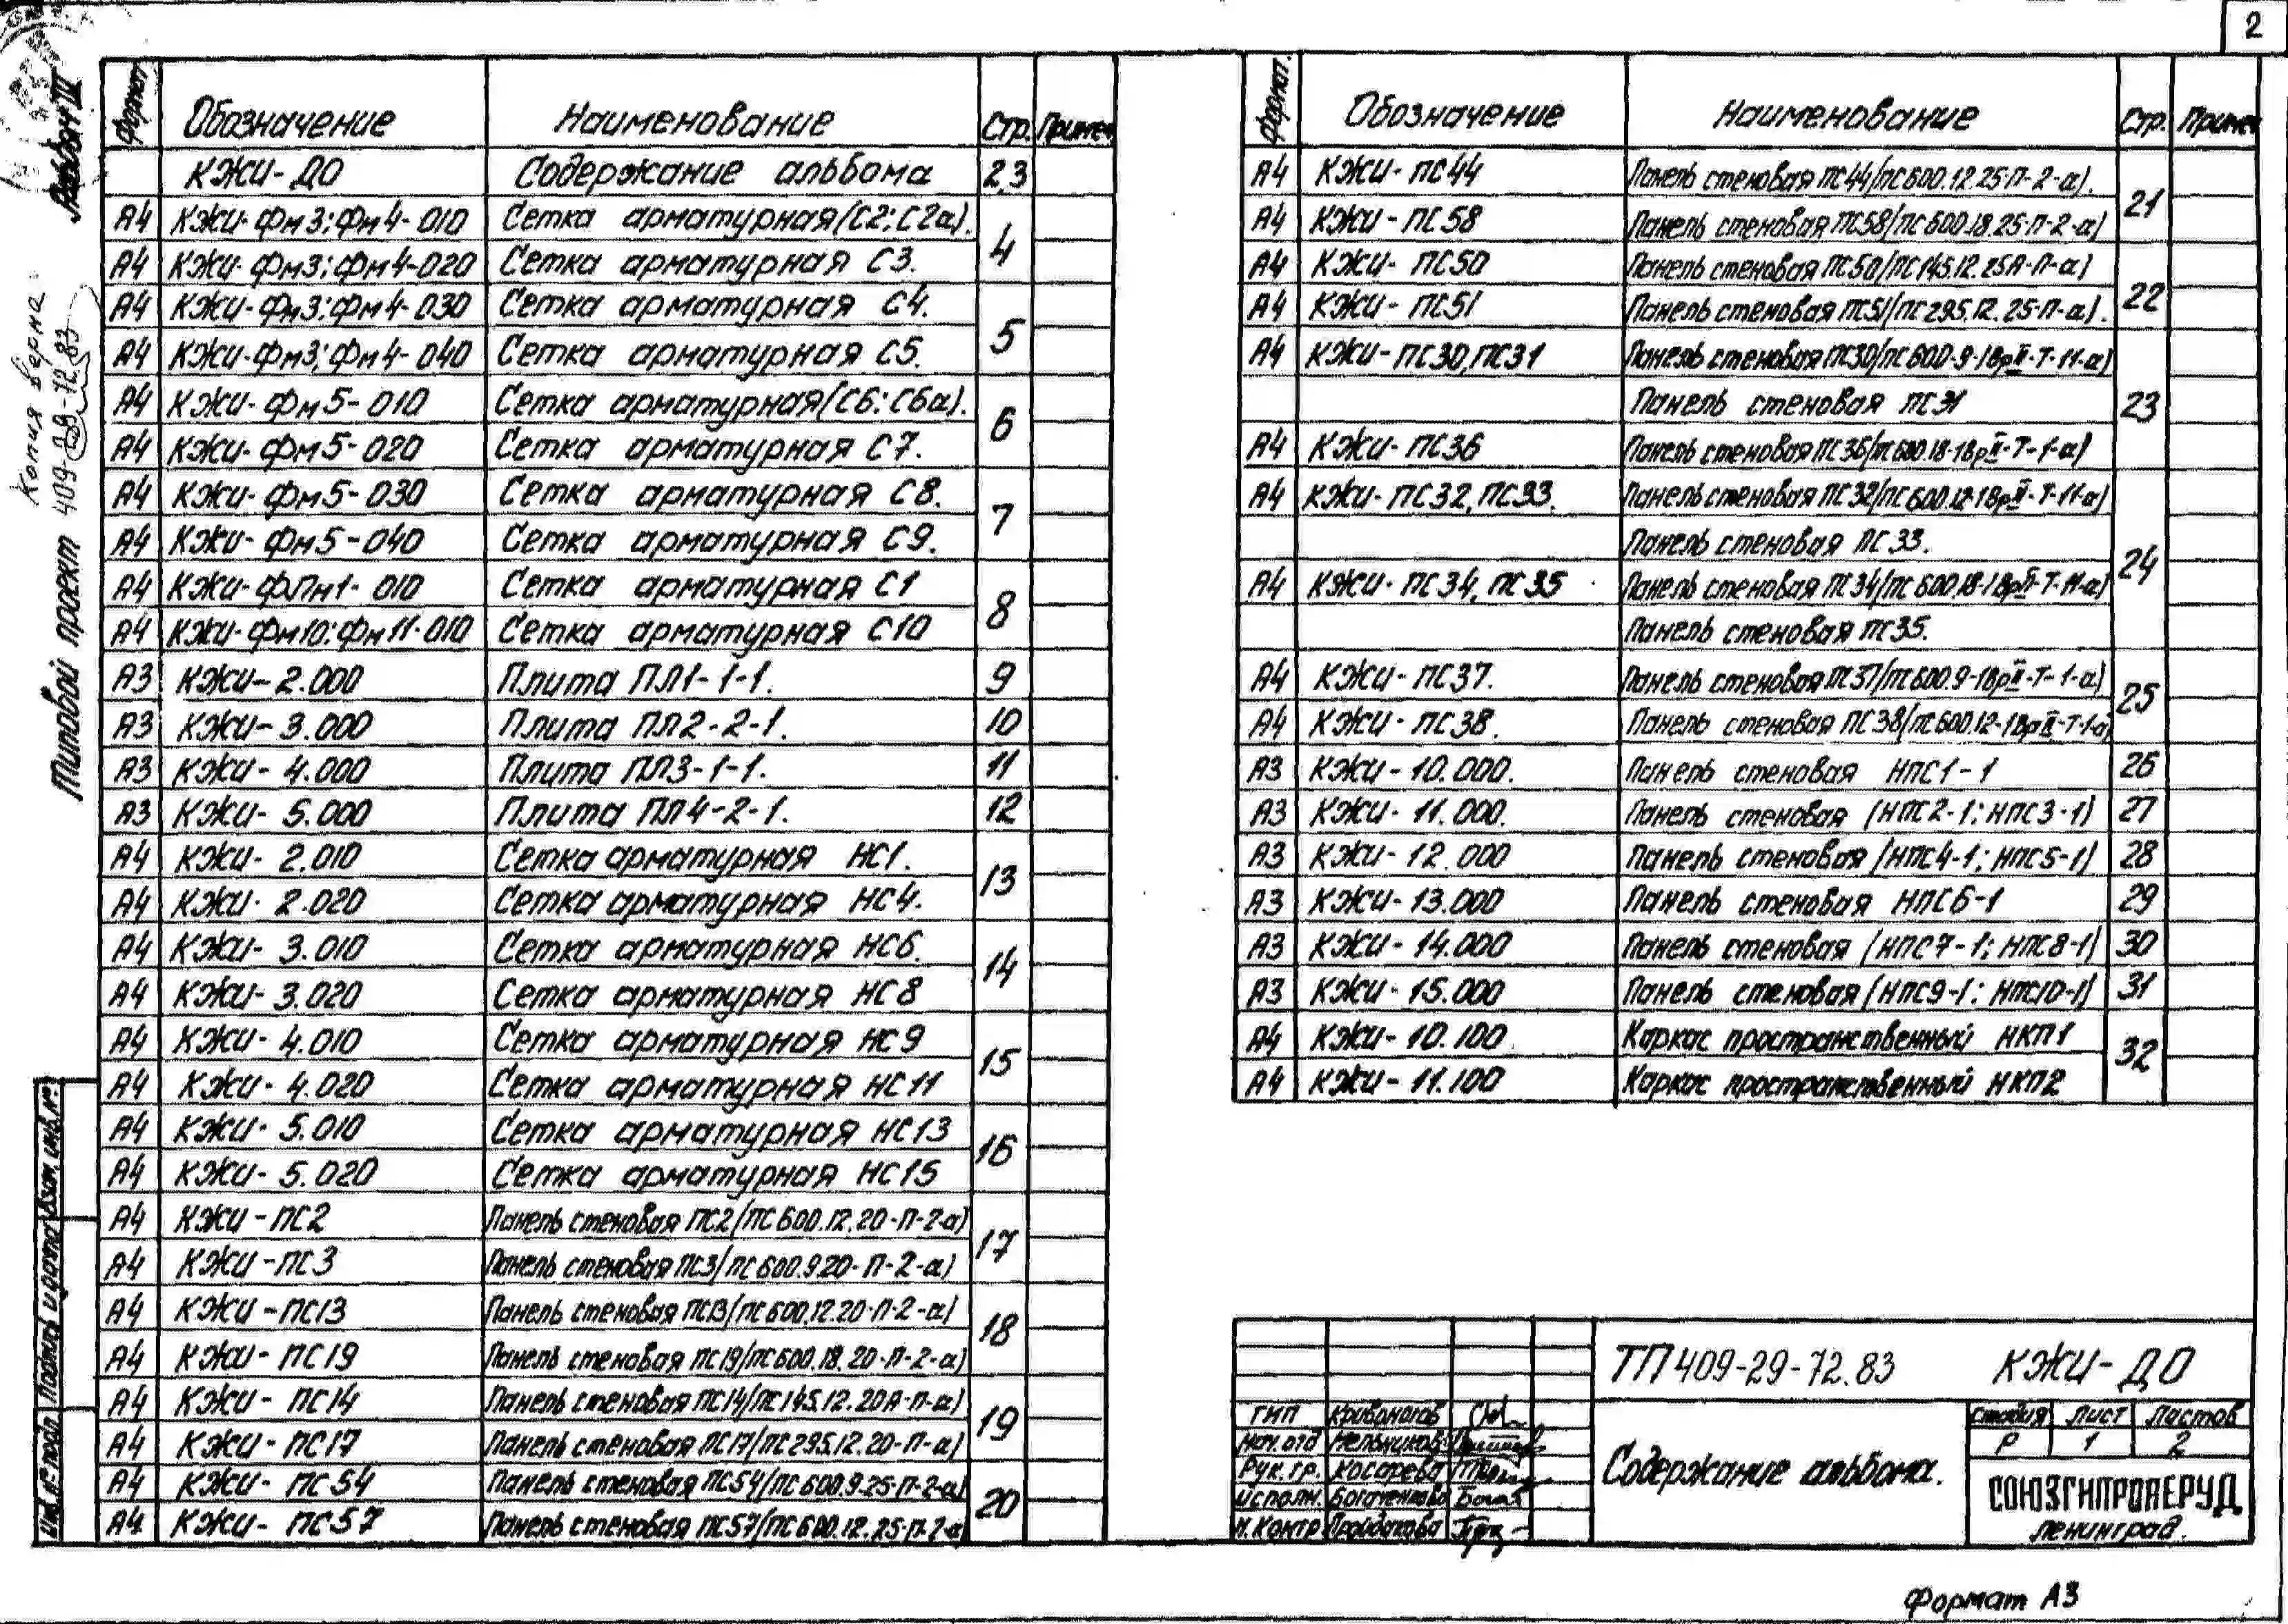 2
Альбом IV
Копия верна
Типовой проект 409-29-72.83
Формат Обозначение Наименование Стр. Примеч
КЖИ-ДО Содержание альбома 2,3
А4 КЖИ-Фм3; Фм4-010 Сетка арматурная (С2; С2а). 4
А4 КЖИ-Фм3; Фм4-020 Сетка арматурная С3.
А4 КЖИ-Фм3; Фм4-030 Сетка арматурная С4. 5
А4 КЖИ-Фм3; Фм4-040 Сетка арматурная С5.
А4 КЖИ-Фм5-010 Сетка арматурная (С6; С6а). 6
А4 КЖИ-Фм5-020 Сетка арматурная С7.
А4 КЖИ-Фм5-030 Сетка арматурная С8. 7
А4 КЖИ-Фм5-040 Сетка арматурная С9.
А4 КЖИ-ФПм1-010 Сетка арматурная С1 8
А4 КЖИ-Фм10; Фм11-010 Сетка арматурная С10
А3 КЖИ-2.000 Плита ПЛ1-1-1. 9
А3 КЖИ-3.000 Плита ПЛ2-2-1. 10
А3 КЖИ-4.000 Плита ПЛ3-1-1. 11
А3 КЖИ-5.000 Плита ПЛ4-2-1. 12
А4 КЖИ-2.010 Сетка арматурная НС1. 13
А4 КЖИ-2.020 Сетка арматурная НС4.
А4 КЖИ-3.010 Сетка арматурная НС6. 14
А4 КЖИ-3.020 Сетка арматурная НС8
А4 КЖИ-4.010 Сетка арматурная НС9 15
А4 КЖИ-4.020 Сетка арматурная НС11
А4 КЖИ-5.010 Сетка арматурная НС13 16
А4 КЖИ-5.020 Сетка арматурная НС15
А4 КЖИ-ПС2 Панель стеновая ПС2/ПС600.12.20-П-2-а) 17
А4 КЖИ-ПС3 Панель стеновая ПС3/ПС600.9.20-П-2-а)
А4 КЖИ-ПС13 Панель стеновая ПС13/ПС600.12.20-П-2-а) 18
А4 КЖИ-ПС19 Панель стеновая ПС19/ПС600.18.20-П-2-а)
А4 КЖИ-ПС14 Панель стеновая ПС14/ПС145.12.20А-П-а) 19
А4 КЖИ-ПС17 Панель стеновая ПС17/ПС295.12.20-П-а)
А4 КЖИ-ПС54 Панель стеновая ПС54/ПС600.9.25-П-2-а) 20
А4 КЖИ-ПС57 Панель стеновая ПС57/ПС600.12.25-П-2-а)
Формат. Обозначение Наименование Стр. Примеч
А4 КЖИ-ПС44 Панель стеновая ПС44/ПС600.12.25-П-2-а). 21
А4 КЖИ-ПС58 Панель стеновая ПС58/ПС600.18.25-П-2-а)
А4 КЖИ-ПС50 Панель стеновая ПС50/ПС145.12.25А-П-а) 22
А4 КЖИ-ПС51 Панель стеновая ПС51/ПС295.12.25-П-а).
А4 КЖИ-ПС30, ПС31 Панель стеновая ПС30/ПС600-9-1ВрII-Т-11-а) 23
Панель стеновая ПС31
А4 КЖИ-ПС36 Панель стеновая ПС36/ПС600.18-1ВрII-Т-1-а)
А4 КЖИ-ПС32, ПС33. Панель стеновая ПС32/ПС600.12-1ВрII-Т-11-а) 24
Панель стеновая ПС33.
А4 КЖИ-ПС34, ПС35 Панель стеновая ПС34/ПС600.18-1ВрII-Т-11-а)
Панель стеновая ПС35.
А4 КЖИ-ПС37. Панель стеновая ПС37/ПС600.9-1ВрII-Т-1-а) 25
А4 КЖИ-ПС38. Панель стеновая ПС38/ПС600.12-1ВрII-Т-1-а)
А3 КЖИ-10.000. Панель стеновая НПС1-1 26
А3 КЖИ-11.000. Панель стеновая (НПС2-1; НПС3-1) 27
А3 КЖИ-12.000 Панель стеновая (НПС4-1; НПС5-1) 28
А3 КЖИ-13.000 Панель стеновая НПС6-1 29
А3 КЖИ-14.000 Панель стеновая (НПС7-1; НПС8-1) 30
А3 КЖИ-15.000 Панель стеновая (НПС9-1; НПС10-1) 31
А4 КЖИ-10.100 Каркас пространственный НКП1 32
А4 КЖИ-11.100 Каркас пространственный НКП2
Взам. инв. №
Подпись и дата
Инв. № подл.
ТП 409-29-72.83 КЖИ-ДО
ГИП Кривоногов
Нач. отд Мельников
Рук. гр. Косарева
Исполн. Богаченкова
Н. Контр Пройдакова
Содержание альбома.
Стадия Лист Листов
Р 1 2
СОЮЗГИПРОНЕРУД
Ленинград.
Формат А3